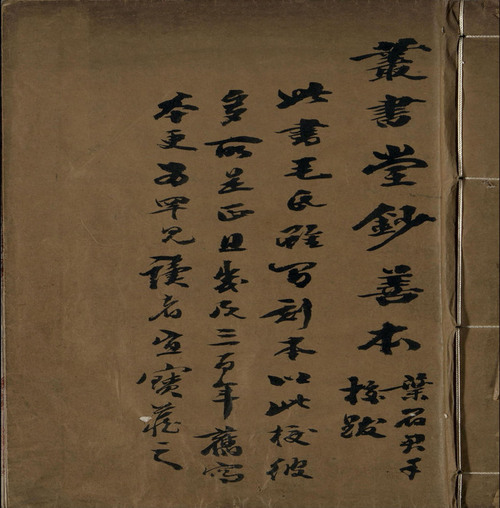 叢書堂鈔善本
葉石君手
校跋
此書毛氏雖习刻本以此校彼
多所是正且幾及三百年舊寫
本更为罕見讀者宜寶藏之